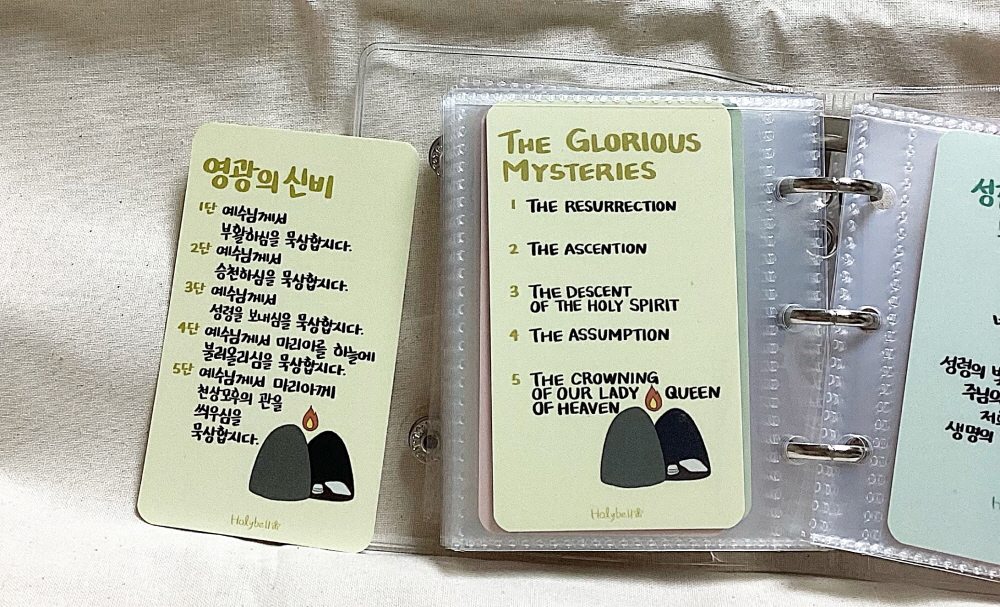 영광의 신비
1단 예수님께서
부활하심을 묵상합시다.
2단 예수님께서
승천하심을 묵상합시다.
3단 예수님께서
성령을 보내심을 묵상합시다.
4단 예수님께서 마리아를 하늘에
불러올리심을 묵상합시다.
5단 예수님께서 마리아께
천상모후의 관을
씌우심을
묵상합시다.
Holybell
THE GLORIOUS
MYSTERIES
1 THE RESURRECTION
2 THE ASCENTION
3 THE DESCENT
OF THE HOLY SPIRIT
4 THE ASSUMPTION
5 THE CROWNING
OF OUR LADY QUEEN
OF HEAVEN
Holybell
성령의
주님의
생명의